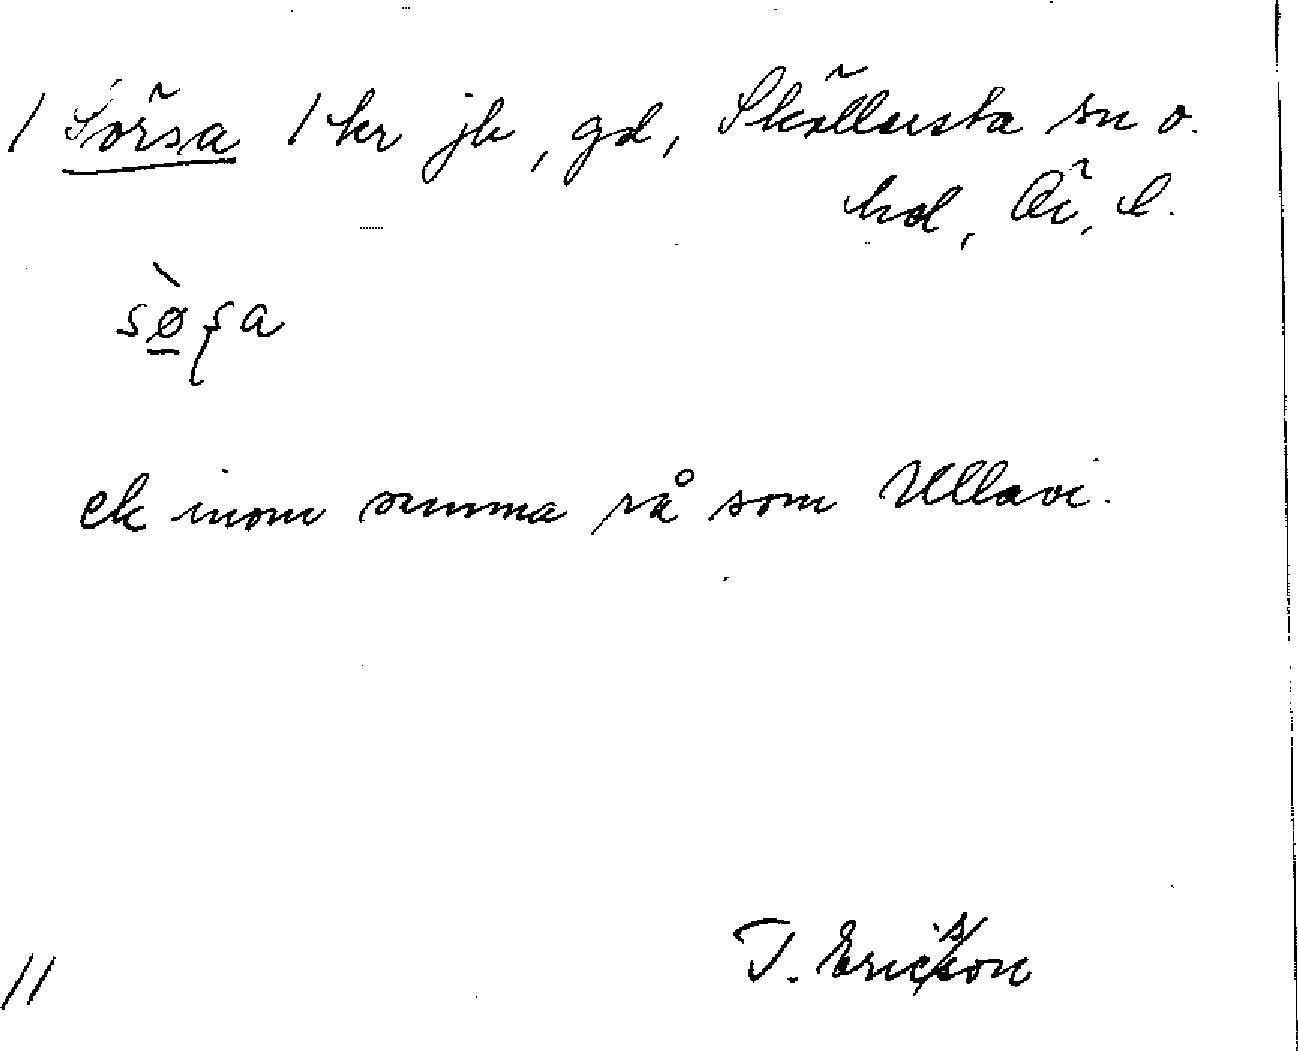 / Sörsa 1 kr jb, gd, Sköllersta sn o.
hd, Ör. l.
sø̠̀ʂa
ek inom samma rå som Ullavi.
T. Ericsson
11